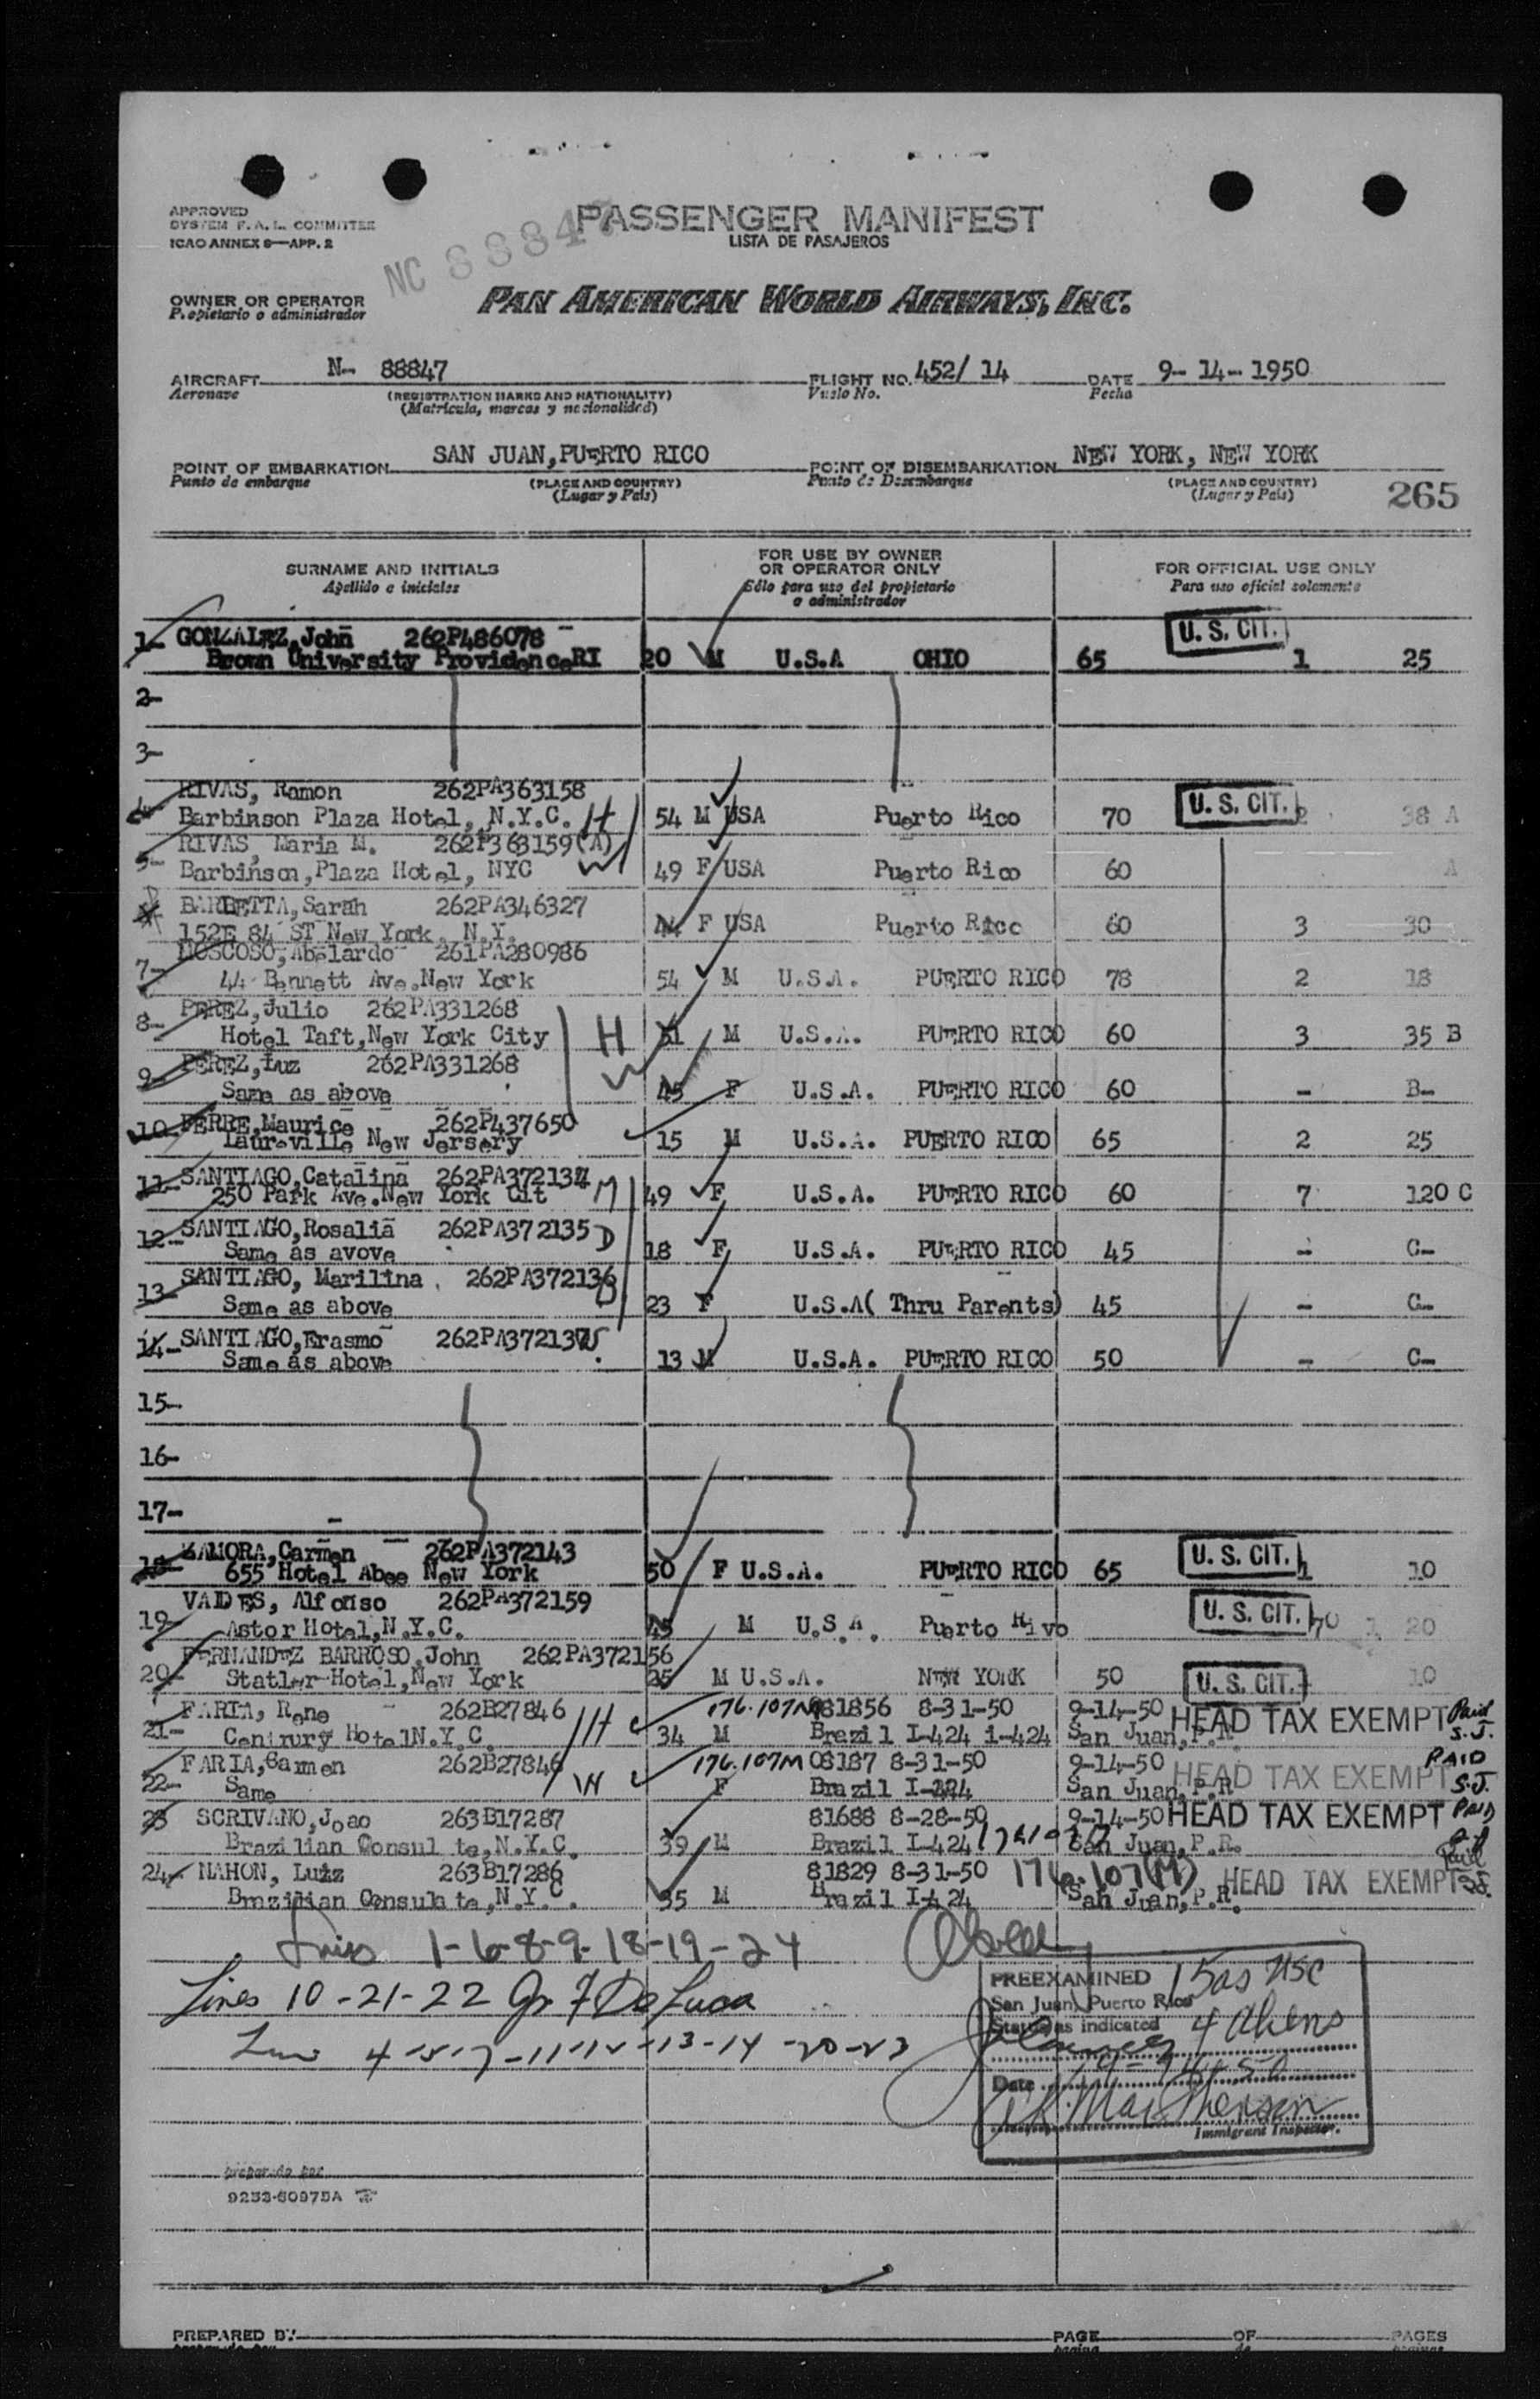 APPROVED
SYSTEM F. A. L. COMMITTEE
ICAO ANNEX 9—APP. 2
NC 88847
PASSENGER MANIFEST
LISTA DE PASAJEROS
OWNER OR OPERATOR
Propietario o administrador
PAN AMERICAN WORLD AIRWAYS, INC.
AIRCRAFT N- 88847 FLIGHT NO. 452/ 14 DATE 9- 14- 1950
Aeronave (REGISTRATION MARKS AND NATIONALITY) Vuelo No. Fecha
(Matrícula, marcas y nacionalidad)
POINT OF EMBARKATION SAN JUAN, PUERTO RICO POINT OF DISEMBARKATION NEW YORK, NEW YORK
Punto de embarque (PLACE AND COUNTRY) Punto de Desembarque (PLACE AND COUNTRY)
(Lugar y País) (Lugar y País) 265
SURNAME AND INITIALS FOR USE BY OWNER OR OPERATOR ONLY FOR OFFICIAL USE ONLY
Apellido e iniciales Sólo para uso del propietario o administrador Para uso oficial solamente
1- GONZALEZ, John 262P486078 U. S. CIT.
Brown University Providence RI 20 M U.S.A OHIO 65 1 25
2-
3-
RIVAS, Ramon 262PA363158 U. S. CIT.
4- Barbinson Plaza Hotel, N.Y.C. H 54 M USA Puerto Rico 70 2 38 A
RIVAS, Maria M. 262P363159(A)
5- Barbinson, Plaza Hotel, NYC W 49 F USA Puerto Rico 60 A
BARBETTA, Sarah 262PA346327
152E 84 ST New York, N.Y. 44 F USA Puerto Rico 60 3 30
MOSCOSO, Abelardo 261PA280986
7- 44 Bennett Ave. New York 54 M U.S.A. PUERTO RICO 78 2 18
PEREZ, Julio 262PA331268
8- Hotel Taft, New York City H 51 M U.S.A. PUERTO RICO 60 3 35 B
PEREZ, Luz 262PA331268
9- Same as above W 45 F U.S.A. PUERTO RICO 60 - B-
10- FERRE, Maurice 262P437650
Laureville New Jersery 15 M U.S.A. PUERTO RICO 65 2 25
11- SANTIAGO, Catalina 262PA372134
250 Park Ave. New York Cit M 49 F U.S.A. PUERTO RICO 60 7 120 C
12- SANTIAGO, Rosalia 262PA372135 D
Same as avove 18 F U.S.A. PUERTO RICO 45 - C-
13- SANTIAGO, Marilina 262PA372136 D
Same as above 23 F U.S.A( Thru Parents) 45 - C-
14- SANTIAGO, Erasmo 262PA372137 S
Same as above 13 M U.S.A. PUERTO RICO 50 - C-
15-
16-
17-
18- ZAMORA, Carmen 262PA372143 U. S. CIT.
655 Hotel Abee New York 50 F U.S.A. PUERTO RICO 65 1 10
VALDES, Alfonso 262PA372159 U. S. CIT.
19- Astor Hotel, N.Y.C. 45 M U.S.A. Puerto Rivo 70 1 20
FERNANDEZ BARROSO, John 262PA372156
20- Statler Hotel, New York 25 M U.S.A. NEW YORK 50 U. S. CIT. 10
FARIA, Rene 262B27846 176.107M 081856 8-31-50 9-14-50 HEAD TAX EXEMPT Paid
21- Centrury Hotel N.Y.C. H 34 M Brazil I-424 i-424 San Juan, P.R. S.J.
FARIA, Carmen 262B27846 176.107M 08187 8-31-50 9-14-50 HEAD TAX EXEMPT PAID
22- Same W F Brazil I-424 San Juan, P.R S.J.
23 SCRIVANO, Joao 263B17287 81688 8-28-50 9-14-50 HEAD TAX EXEMPT PAID
Brazilian Consul te, N.Y.C. 39 M Brazil I-424 San Juan, P.R.
24- NAHON, Luiz 263B17286 81829 8-31-50 176.107(M) HEAD TAX EXEMPT Paid
Brazilian Consula te, N.Y.C. 35 M Brazil I-424 San Juan, P.R. S.J.
Lines 1-6-8-9-18-19-24
Lines 10-21-22 F De Luca
4-5-7-11-12-13-14-20-23
PREEXAMINED 15 as USC
San Juan, Puerto Rico
Status as indicated 4 Aliens
Date 9-14-50
Immigrant Inspector.
preparado por
9253-60975A
PREPARED BY PAGE OF PAGES
preparado por página de páginas